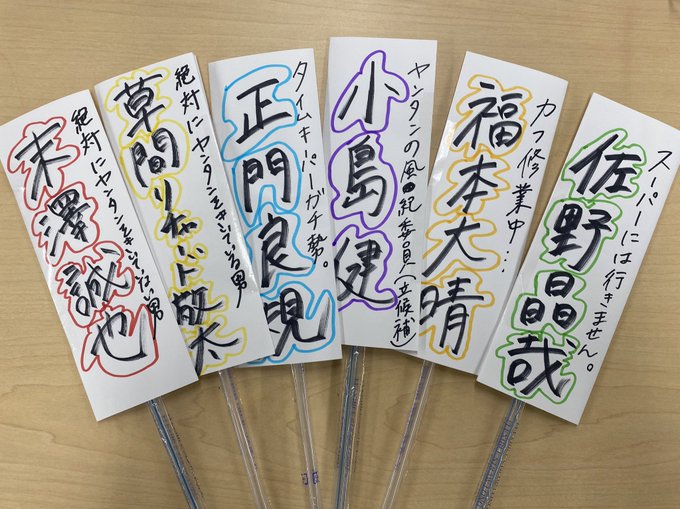 絶対にヤンタンをきいていない男
末澤誠也
絶対にヤンタンをきいている男
草間リチャード敬太
タイムキーパーガチ勢。
正門良規
ヤンタンの風紀委員(立候補)
小島健
カフ修業中…
福本大晴
スーパーには行きません。
佐野晶哉